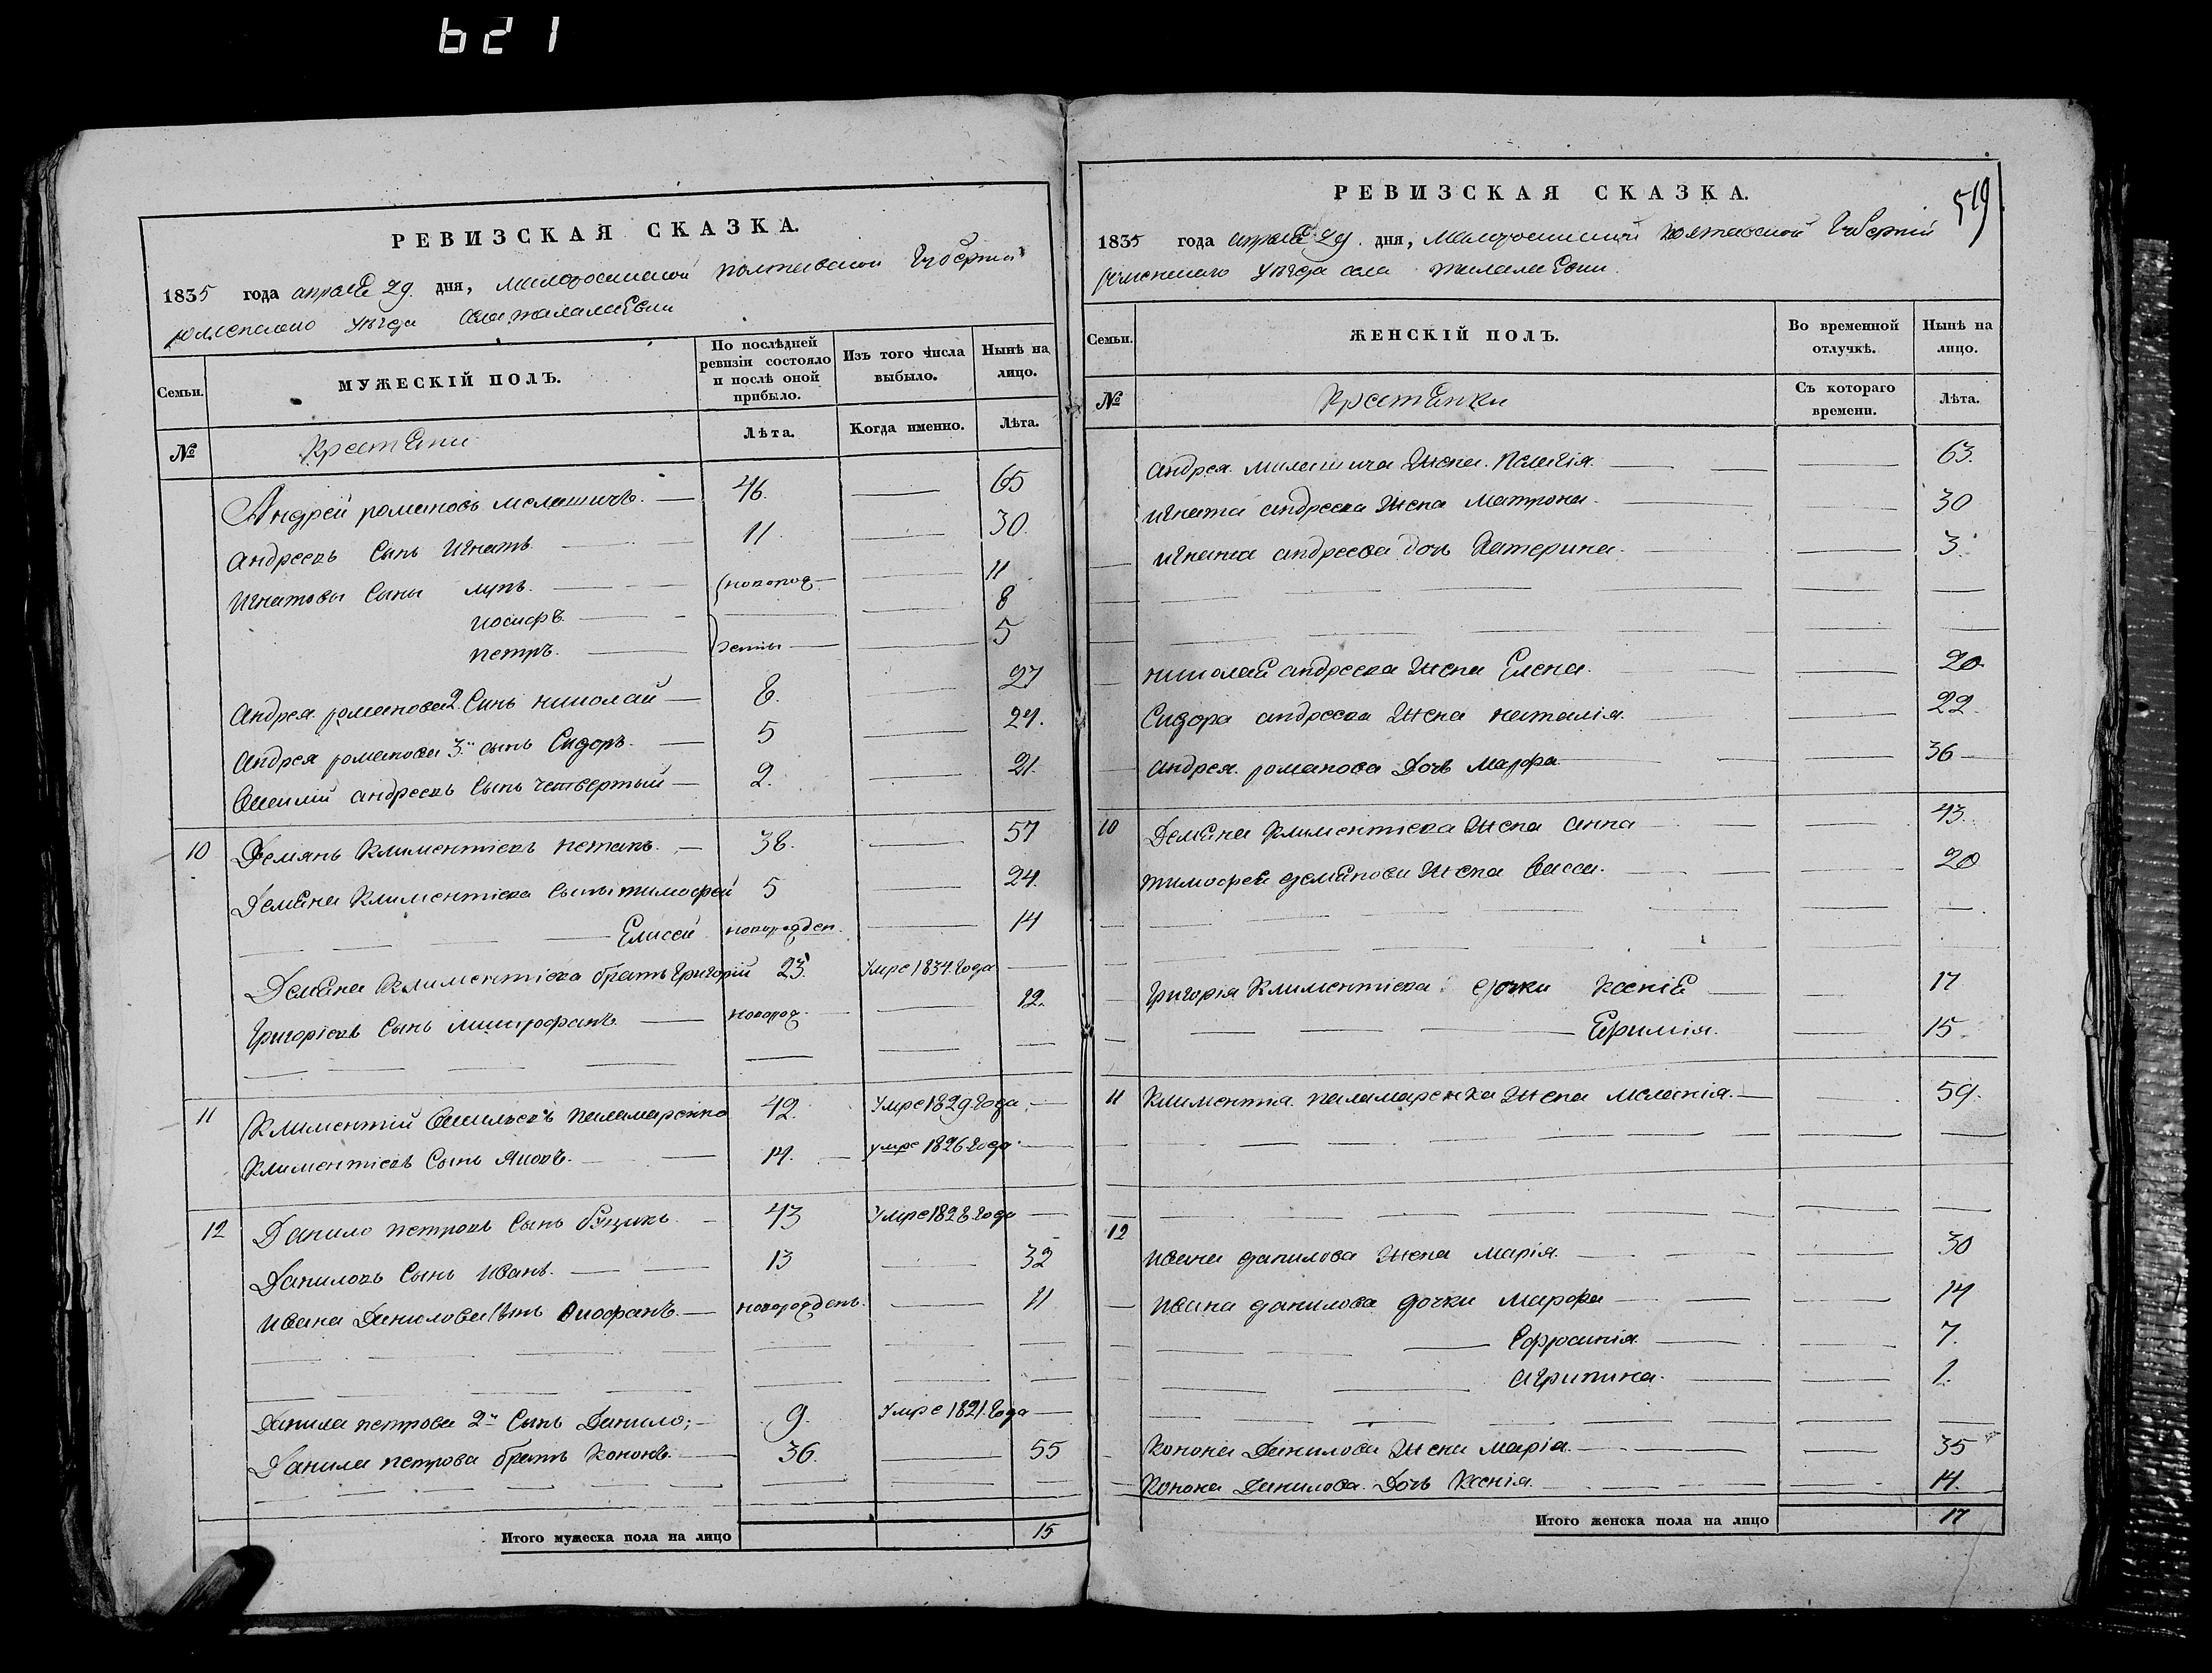 621
РЕВИЗСКАЯ СКАЗКА.
1835 года апреля 29 дня, малороссийской полтавской Губернии
роменского уезда села
Семьи.
МУЖЕСКІЙ ПОЛЪ.
По послѣдней ревизіи состояло и послѣ оной прибыло.
Изъ того числа выбыло.
Нынѣ на лицо.
№
Крестяни
Лѣта.
Когда именно.
Лѣта.
Андрей романовъ малашичъ. 46. 65
Андреевъ Сынъ Игнатъ 11. 30.
Игнатовы Сыны лупъ. новорож 11
иосифъ. 8
петръ. денны 5
Андрея романова 2. Синъ николай 8. 27
Андрея романова 3й сынъ Сидоръ. 5 24.
Василий андреевъ Сынъ четвертый 2. 21.
10 Демянъ Климентіевъ петакъ. 38. 57
Демяна Климентіева Сыны тимофей 5 24.
Елисей новорожден. 14
Демяна Климентіева братъ Григорій 23. Умре 1834. Года
Григоріевъ Сынъ митрофанъ. новорож. 12.
11 Климентий Васильевъ паламаренко 42. Умре 1829. Года
Климентіевъ Сынъ Яковъ. 14. умре 1826 Года
12 Данило петровъ Сынъ буцикъ. 43 Умре 1828 Года
Даниловъ Сынъ Иванъ. 13 32
Ивана Данилова Сынъ Феофанъ. новорожденъ. 11
Данила петрова 2й Сынъ Данило; 9. Умре 1821. Года
Данила петрова братъ Кононъ. 36. 55
Итого мужеска пола на лицо 15
РЕВИЗСКАЯ СКАЗКА.
519
1835 года апреля 29. дня, малороссийской полтавской Губерній
роменского уезда села
Семьи.
ЖЕНСКІЙ ПОЛЪ.
Во временной отлучкѣ.
Нынѣ на лицо.
№
Крестянки
Съ котораго времени.
Лѣта.
Андрея малашича Жена. Пелагія. 63.
Игната андреева Жена матрона. 30
Игната андреева дочь Катерина. 3.
николая андреева Жена Елена. 20.
Сидора андреева Жена наталія. 22.
Андрея романова Дочь марфа 36
10 Демяна Климентіева Жена анна 43.
тимофея демянова Жена Васса. 20
Григорія Климентіева дочки Ксенія 17
Ефимія. 15.
11 Климентія паламаренка Жена меланія. 59.
12
Ивана данилова Жена марія. 30
Ивана данилова дочки марфа 14
Ефросинія. 7.
Агрипина. 1.
Конона Данилова Жена марія. 35
Конона Данилова. Дочь Ксенія. 14.
Итого женска пола на лицо 17